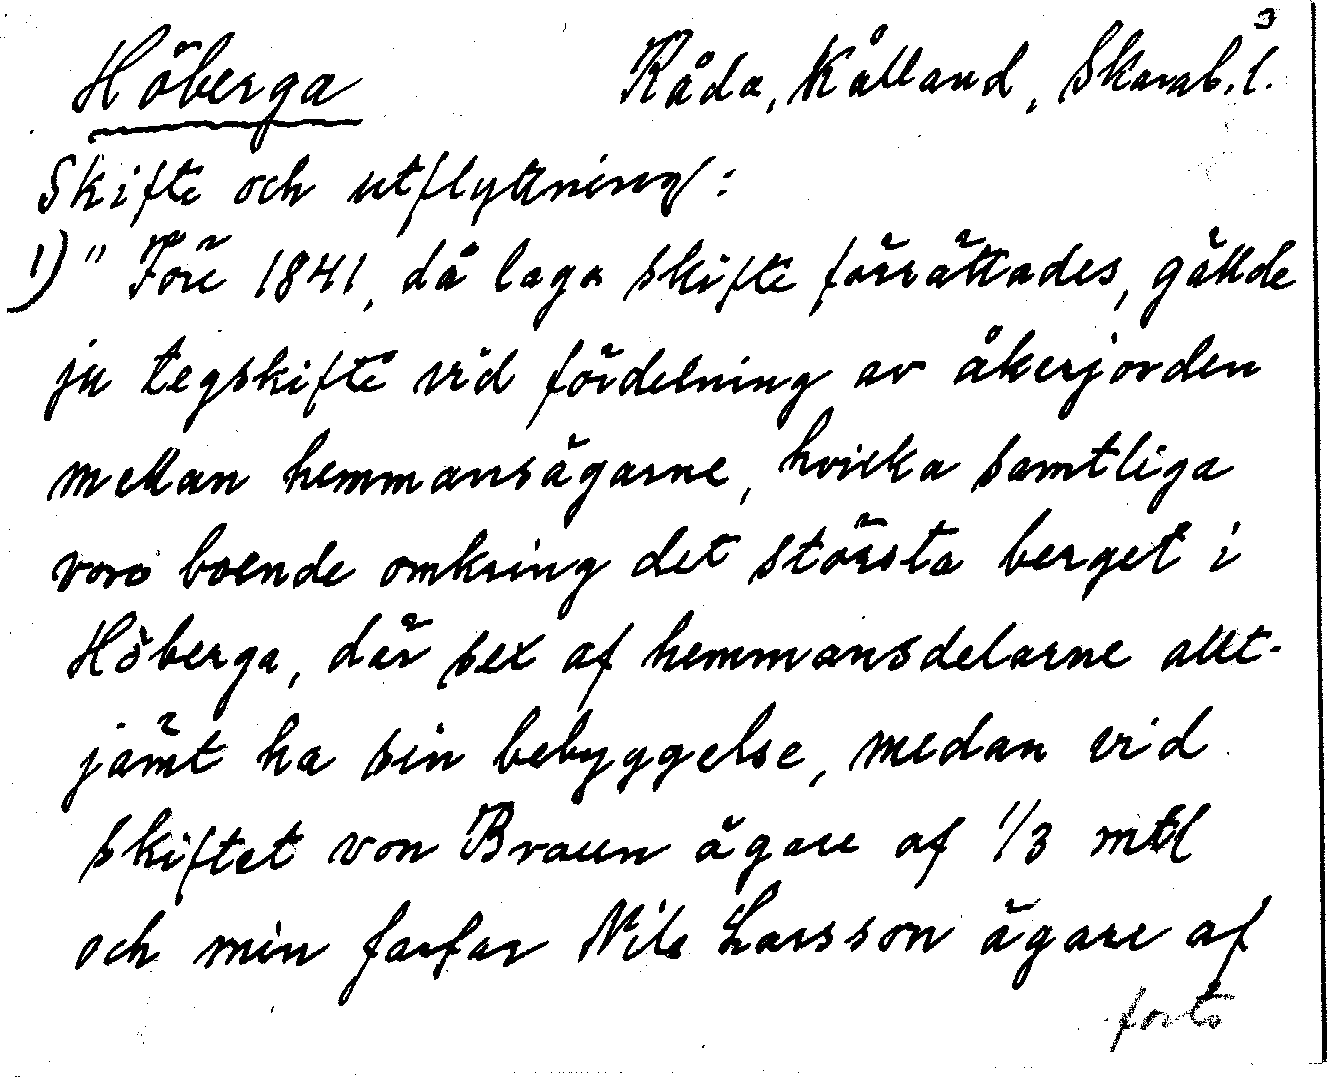 3
Höberga Råda, Kålland, Skarab. l.
Skifte och utflyttning:
1) " Före 1841, då laga skifte förrättades, gällde
ju tegskifte vid fördelning av åkerjorden
mellan hemmansägarne, hvilka samtliga
voro boende omkring det största berget i
Höberga, där sex af hemmansdelarne allt-
jämt ha sin bebyggelse, medan vid
skiftet von Braun ägare af 1/3 mtl
och min farfar Nils Larsson ägare af
forts